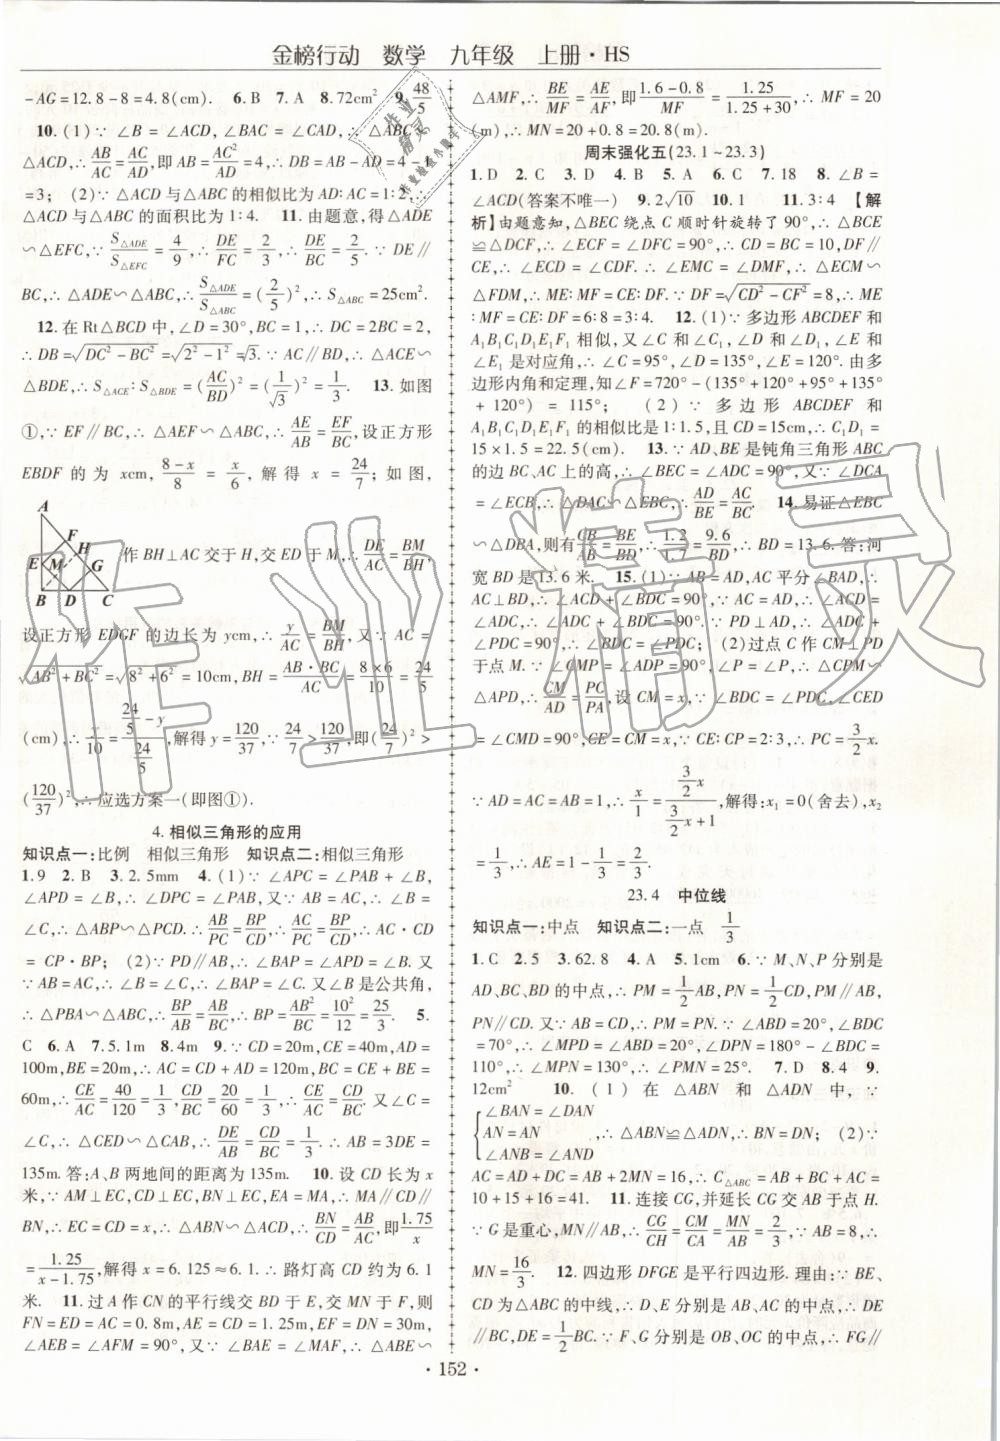 金榜行动 数学 九年级 上册·HS
-AG=12.8-8=4.8(cm). 6.B 7.A 8.72cm² 9.48/5
10.(1)∵∠B=∠ACD,∠BAC=∠CAD,∴△ABC∽
△ACD,∴AB/AC=AC/AD,即AB=AC²/AD=4,∴DB=AB-AD=4-1
=3;(2)∵△ACD与△ABC的相似比为AD∶AC=1∶2,∴
△ACD与△ABC的面积比为1∶4. 11.由题意,得△ADE
∽△EFC,∵S△ADE/S△EFC=4/9,∴DE/FC=2/3,∴DE/BC=2/5.∵DE∥
BC,∴△ADE∽△ABC,∴S△ADE/S△ABC=(2/5)²,∴S△ABC=25cm².
12.在Rt△BCD中,∠D=30°,BC=1,∴DC=2BC=2,
∴DB=√(DC²-BC²)=√(2²-1²)=√3.∵AC∥BD,∴△ACE∽
△BDE,∴S△ACE∶S△BDE=(AC/BD)²=(1/√3)²=1/3. 13.如图
①,∵EF∥BC,∴△AEF∽△ABC,∴AE/AB=EF/BC,设正方形
EBDF的为xcm,(8-x)/8=x/6,解得x=24/7;如图,
A
F
H
E M G
B D C
作BH⊥AC交于H,交ED于M,∴DE/AC=BM/BH,
设正方形EDGF的边长为ycm,∴y/AC=BM/BH,又∵AC=
√(AB²+BC²)=√(8²+6²)=10cm,BH=AB·BC/AC=8×6/10=24/5
(cm),∴x/10=(24/5-y)/(24/5),解得y=120/37,∵24/7>120/37,即(24/7)²>
(120/37)²,∴应选方案一(即图①).
4.相似三角形的应用
知识点一:比例 相似三角形 知识点二:相似三角形
1.9 2.B 3.2.5mm 4.(1)∵∠APC=∠PAB+∠B,
∠APD=∠B,∴∠DPC=∠PAB,又AB=AC,∴∠B=
∠C,∴△ABP∽△PCD.∴AB/PC=BP/CD,∴AC/PC=BP/CD,∴AC·CD
=CP·BP;(2)∵PD∥AB,∴∠BAP=∠APD=∠B.又
∵AB=AC,∴∠B=∠C,∴∠BAP=∠C.又∠B是公共角,
∴△PBA∽△ABC,∴BP/AB=AB/BC,∴BP=AB²/BC=10²/12=25/3. 5.
C 6.A 7.5.1m 8.4m 9.∵CD=20m,CE=40m,AD=
100m,BE=20m,∴AC=CD+AD=120m,BC=CE+BE=
60m,∴CE/AC=40/120=1/3,CD/BC=20/60=1/3,∴CE/AC=CD/BC.又∠C=
∠C,∴△CED∽△CAB,∴DE/AB=CD/BC=1/3,∴AB=3DE=
135m.答:A、B两地间的距离为135m. 10.设CD长为x
米,∵AM⊥EC,CD⊥EC,BN⊥EC,EA=MA,∴MA∥CD∥
BN,∴EC=CD=x,∴△ABN∽△ACD,∴BN/CD=AB/AC,即1.75/x
=1.25/(x-1.75),解得x=6.125≈6.1.∴路灯高CD约为6.1
米. 11.过A作CN的平行线交BD于E,交MN于F,则
FN=ED=AC=0.8m,AE=CD=1.25m,EF=DN=30m,
∠AEB=∠AFM=90°,又∵∠BAE=∠MAF,∴△ABE∽
△AMF,∴BE/MF=AE/AF,即(1.6-0.8)/MF=1.25/(1.25+30),∴MF=20
(m),∴MN=20+0.8=20.8(m).
周末强化五(23.1~23.3)
1.D 2.C 3.D 4.B 5.A 6.C 7.18 8.∠B=
∠ACD(答案不唯一) 9.2√10 10. 11.3∶4 【解
析】由题意知,△BEC绕点C顺时针旋转了90°,∴△BCE
≌△DCF,∴∠ECF=∠DFC=90°,∴CD=BC=10,DF∥
CE,∴∠ECD=∠CDF.∵∠EMC=∠DMF,∴△ECM∽
△FDM,∴ME∶MF=CE∶DF.∵DF=√(CD²-CF²)=8,∴ME
∶MF=CE∶DF=6∶8=3∶4. 12.(1)∵多边形ABCDEF和
A₁B₁C₁D₁E₁F₁相似,又∠C和∠C₁、∠D和∠D₁、∠E和
∠E₁是对应角,∴∠C=95°,∠D=135°,∠E=120°.由多
边形内角和定理,知∠F=720°-(135°+120°+95°+135°
+120°)=115°;(2)∵多边形ABCDEF和
A₁B₁C₁D₁E₁F₁的相似比是1∶1.5,且CD=15cm,∴C₁D₁=
15×1.5=22.5(cm). 13.∵AD、BE是钝角三角形ABC
的边BC、AC上的高,∴∠BEC=∠ADC=90°,又∵∠DCA
=∠ECB,∴△DAC∽△EBC,∴AD/BE=AC/BC. 14.易证△EBC
∽△DBA,则有CB/BA=BE/BD,∴1.2/1.7=9.6/BD,∴BD=13.6.答:河
宽BD是13.6米. 15.(1)∵AB=AD,AC平分∠BAD,
∴AC⊥BD,∴∠ACD+∠BDC=90°,∵AC=AD,∴∠ACD=
∠ADC,∴∠ADC+∠BDC=90°.∵PD⊥AD,∴∠ADC+
∠PDC=90°,∴∠BDC=∠PDC;(2)过点C作CM⊥PD
于点M.∵∠CMP=∠ADP=90°,∠P=∠P,∴△CPM∽
△APD,∴CM/AD=PC/PA,设CM=x,∵∠BDC=∠PDC,∠CED
=∠CMD=90°,CE=CM=x,∵CE∶CP=2∶3,∴PC=3/2x.
∵AD=AC=AB=1,∴x/1=(3/2x)/(3/2x+1),解得:x₁=0(舍去),x₂
=1/3,∴AE=1-1/3=2/3.
23.4 中位线
知识点一:中点 知识点二:一点 1/3
1.C 2.5 3.62.8 4.A 5.1cm 6.∵M、N、P分别是
AD、BC、BD的中点,∴PM=1/2AB,PN=1/2CD,PM∥AB,
PN∥CD.又∵AB=CD,∴PM=PN.∵∠ABD=20°,∠BDC
=70°,∴∠MPD=∠ABD=20°,∠DPN=180°-∠BDC=
110°,∴∠MPN=130°,∴∠PMN=25°. 7.D 8.4 9.
12cm² 10.(1)在△ABN和△ADN中,∵
{∠BAN=∠DAN
AN=AN ,∴△ABN≌△ADN,∴BN=DN;(2)∵
∠ANB=∠AND
AC=AD+DC=AB+2MN=16,∴C△ABC=AB+BC+AC=
10+15+16=41. 11.连接CG,并延长CG交AB于点H.
∵G是重心,MN∥AB,∴CG/CH=CM/CA=MN/AB=2/3,∵AB=8,∴
MN=16/3. 12.四边形DFGE是平行四边形.理由:∵BE、
CD为△ABC的中线,∴D、E分别是AB、AC的中点,∴DE
∥BC,DE=1/2BC.∵F、G分别是OB、OC的中点,∴FG∥
·152·